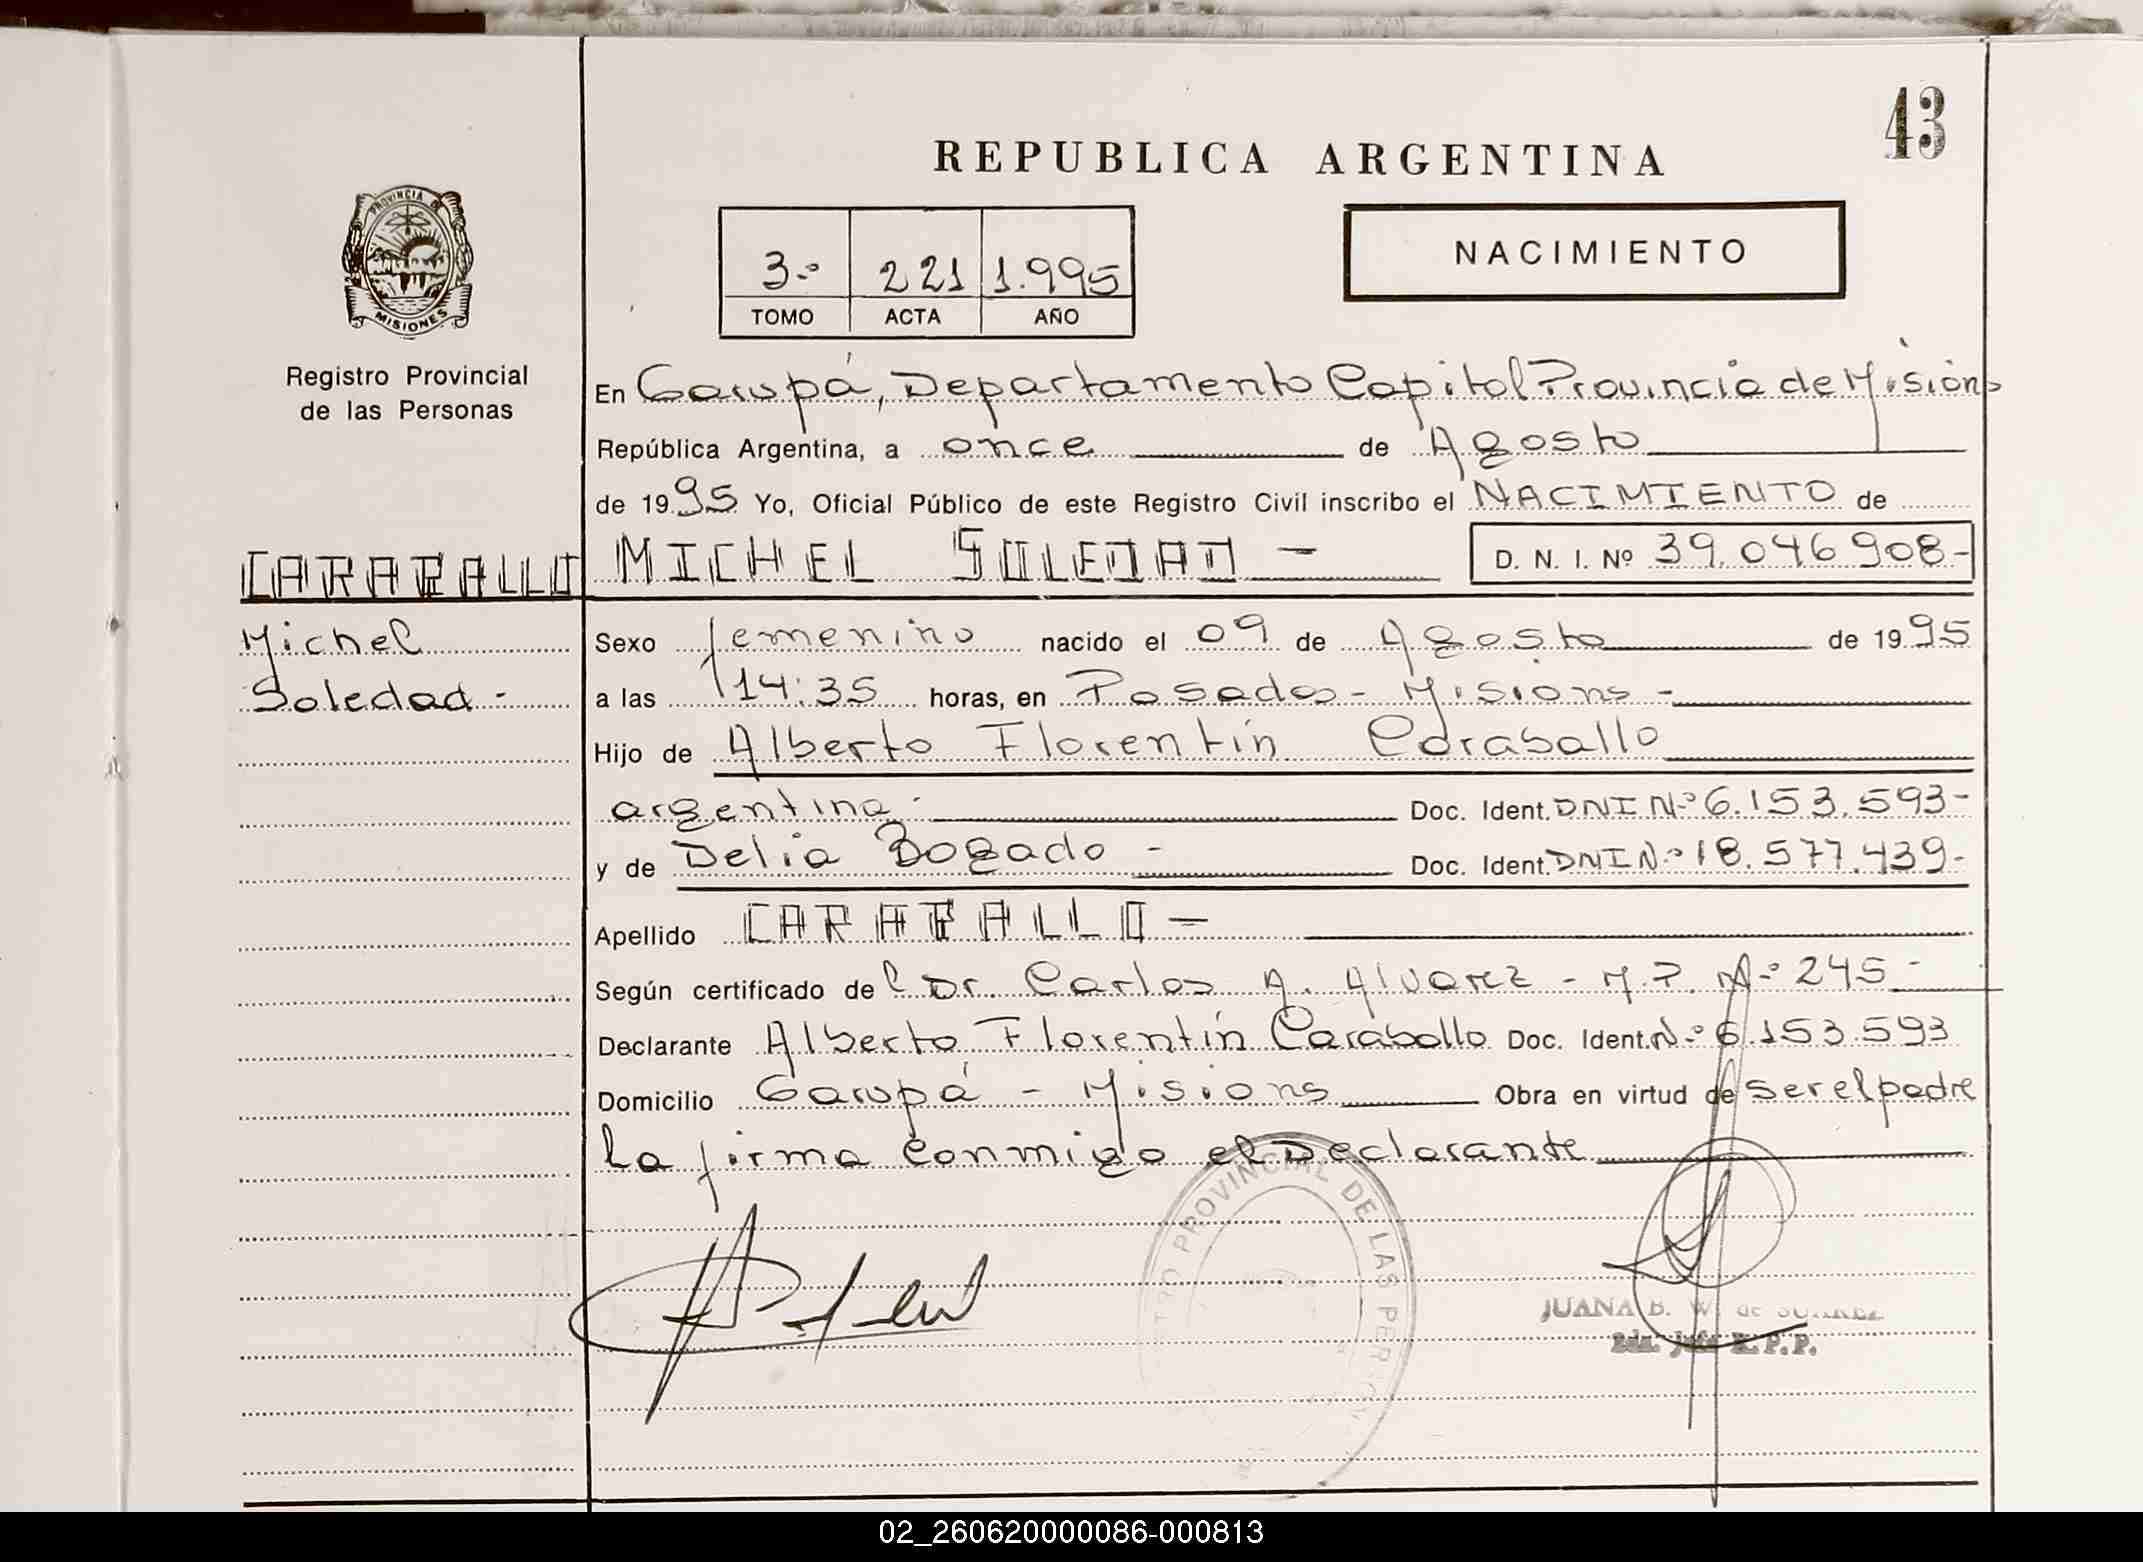 43
REPUBLICA ARGENTINA
PROVINCIA DE
MISIONES
3.º 221 1.995
TOMO ACTA AÑO
NACIMIENTO
Registro Provincial
de las Personas
En Garupá, Departamento Capital Provincia de Misions
República Argentina, a once de Agosto
de 1995 Yo, Oficial Público de este Registro Civil inscribo el NACIMIENTO de
CARABALLO MICHEL SOLEDAD - D. N. I. Nº 39.046.908-
Michel
Soledad -
Sexo femenino nacido el 09 de Agosto de 1995
a las 14:35 horas, en Posadas - Misions -
Hijo de Alberto Florentín Caraballo
argentina - Doc. Ident. DNI N.º 6.153.593-
y de Delia Bogado - Doc. Ident. DNI N.º 18.577.439-
Apellido CARABALLO -
Según certificado del Dr. Carlos A. Alvarez - M.P. N.º 245 -
Declarante Alberto Florentín Caraballo Doc. Ident. N.º 6.153.593
Domicilio Garupá - Misions Obra en virtud de ser el padre
La firma conmigo el Declarante
PROVINCIAL DE LAS PERSON
JUANA B. W. de SUAREZ
2da. Jefe R.P.P.
02_260620000086-000813